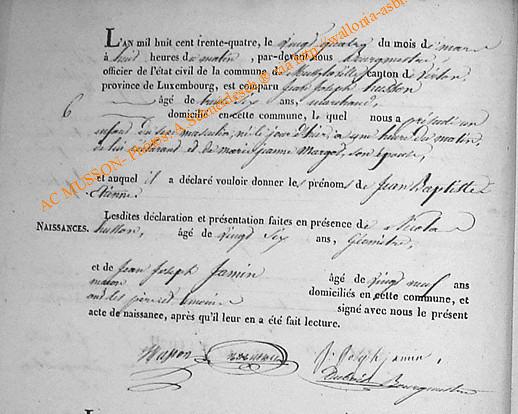 L'AN mil huit cent trente-quatre, le vingt quatre du mois de mars
à huit heures du matin, par-devant nous Bourgmestre,
officier de l'état civil de la commune de canton de Virton
province de Luxembourg, est comparu Jean Joseph husson
6 âgé de trente six ans, marchand,
domicilié en cette commune, le quel nous a présenté un
enfant du sexe masculin, né le jour d'hier à une heure du matin,
de lui déclarant et de marie jeanne Margot, son épouse,
et auquel il a déclaré vouloir donner les prénoms de Jean Baptiste
Etienne.
Lesdites déclaration et présentation faites en présence de Nicolas
NAISSANCES. husson, âgé de vingt six ans, Géomètre,
et de Jean Joseph Jamin âgé de vingt neuf ans
maçon domiciliés en cette commune, et
ont les père et témoins signé avec nous le présent
acte de naissance, après qu'il leur en a été fait lecture.
Husson J. J. Jamin
Bourgmestre
AC MUSSON- Photos: A.